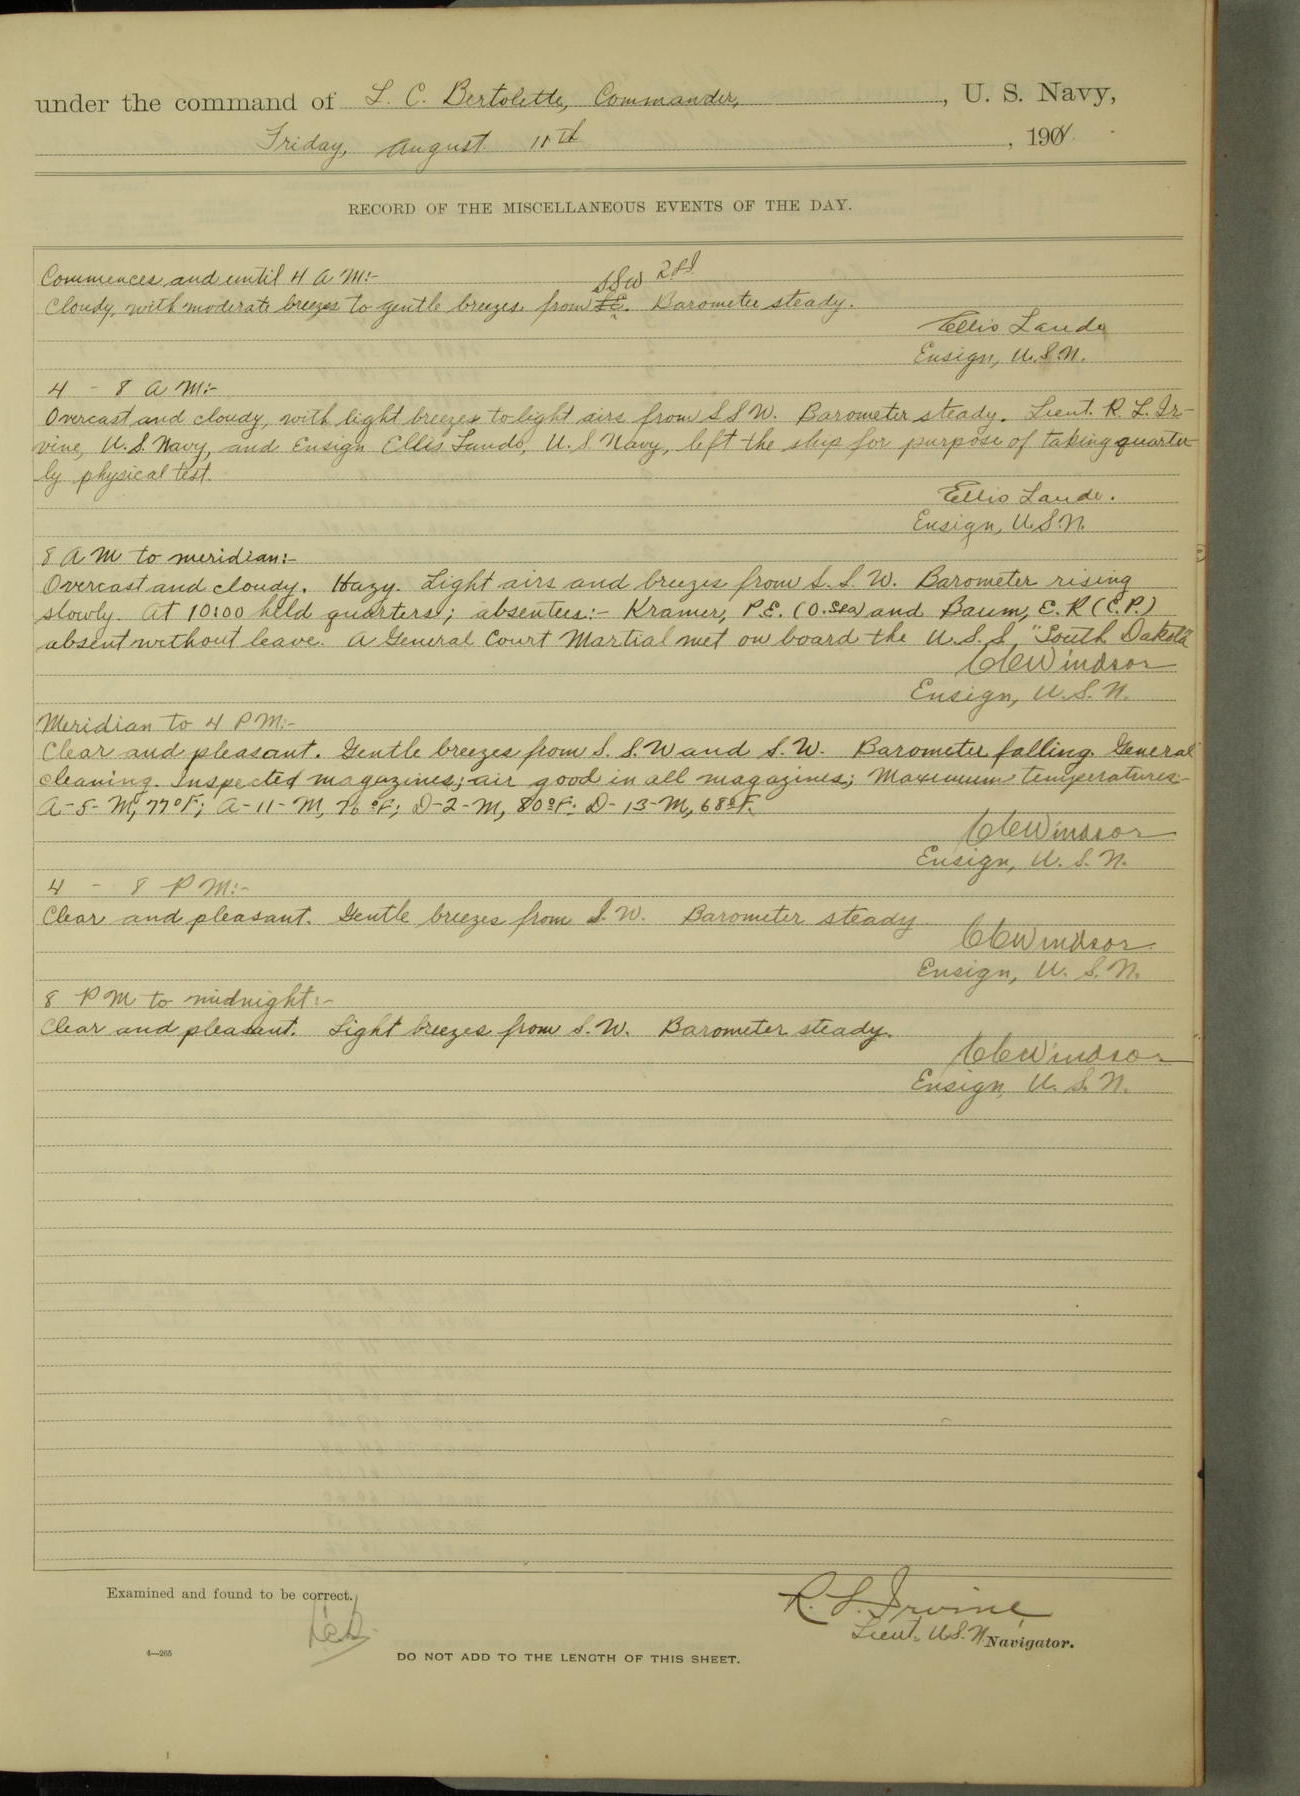 under the command of L. C. Bertolette, Commander, , U. S. Navy,
Friday, August 11th , 190
RECORD OF THE MISCELLANEOUS EVENTS OF THE DAY.
Commences and until 4 A M:-
SSW
Cloudy, with moderate breezes to gentle breezes from SE. Barometer steady.
Ellis Lando
Ensign, U.S.N.
4 - 8 A M:-
Overcast and cloudy, with light breezes to light airs from S S W. Barometer steady. Lieut. R. L. Ir-
vine, U.S. Navy, and Ensign Ellis Lando, U.S Navy, left the ship for purpose of taking quarter-
ly physical test.
Ellis Lando.
Ensign, U.S.N.
8 A M to meridian:-
Overcast and cloudy. Hazy. Light airs and breezes from S. S. W. Barometer rising
slowly. At 10:00 held quarters; absentees:- Kramer, P.E. (O.Sea) and Baum, E. R (C.P.)
absent without leave. A General Court Martial met on board the U.S.S "South Dakota"
CCWindsor
Ensign, U.S.N.
Meridian to 4 P M:-
Clear and pleasant. Gentle breezes from S. S.W and S.W. Barometer falling. General
cleaning. Inspected magazines; air good in all magazines; Maximum temperatures-
A-5-M, 77°F; A-11-M, 76°F; D-2-M, 80°F: D-13-M, 68°F.
CCWindsor
Ensign, U. S. N.
4 - 8 P M:-
Clear and pleasant. Gentle breezes from S.W. Barometer steady
CCWindsor
Ensign, U. S. N.
8 P M to midnight:-
Clear and pleasant. Light breezes from S.W. Barometer steady.
CCWindsor
Ensign, U. S. N.
Examined and found to be correct.
R. L. Irvine,
Lieut. U.S.N Navigator.
4—265
DO NOT ADD TO THE LENGTH OF THIS SHEET.